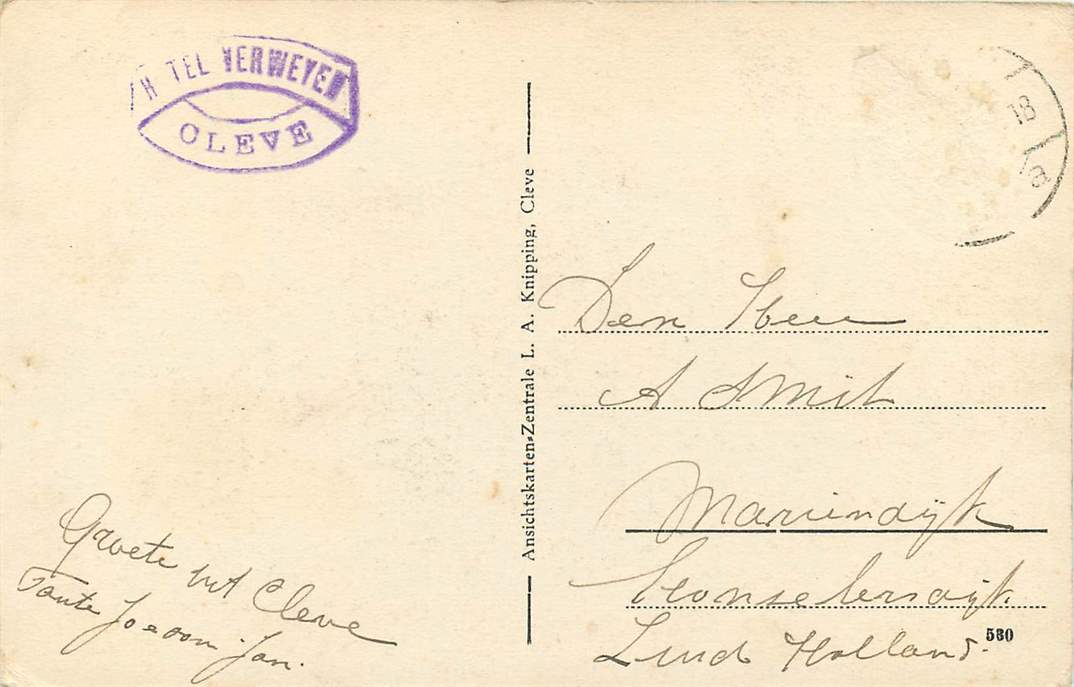 H TEL VERWEYEN
CLEVE
18
8
Ansichtskarten-Zentrale L. A. Knipping, Cleve
Den Heer
A Smit
Mariendijk
Honselersdijk
Zuid Holland.
560
Groete uit Cleve
Tante Jo e oom Jan.